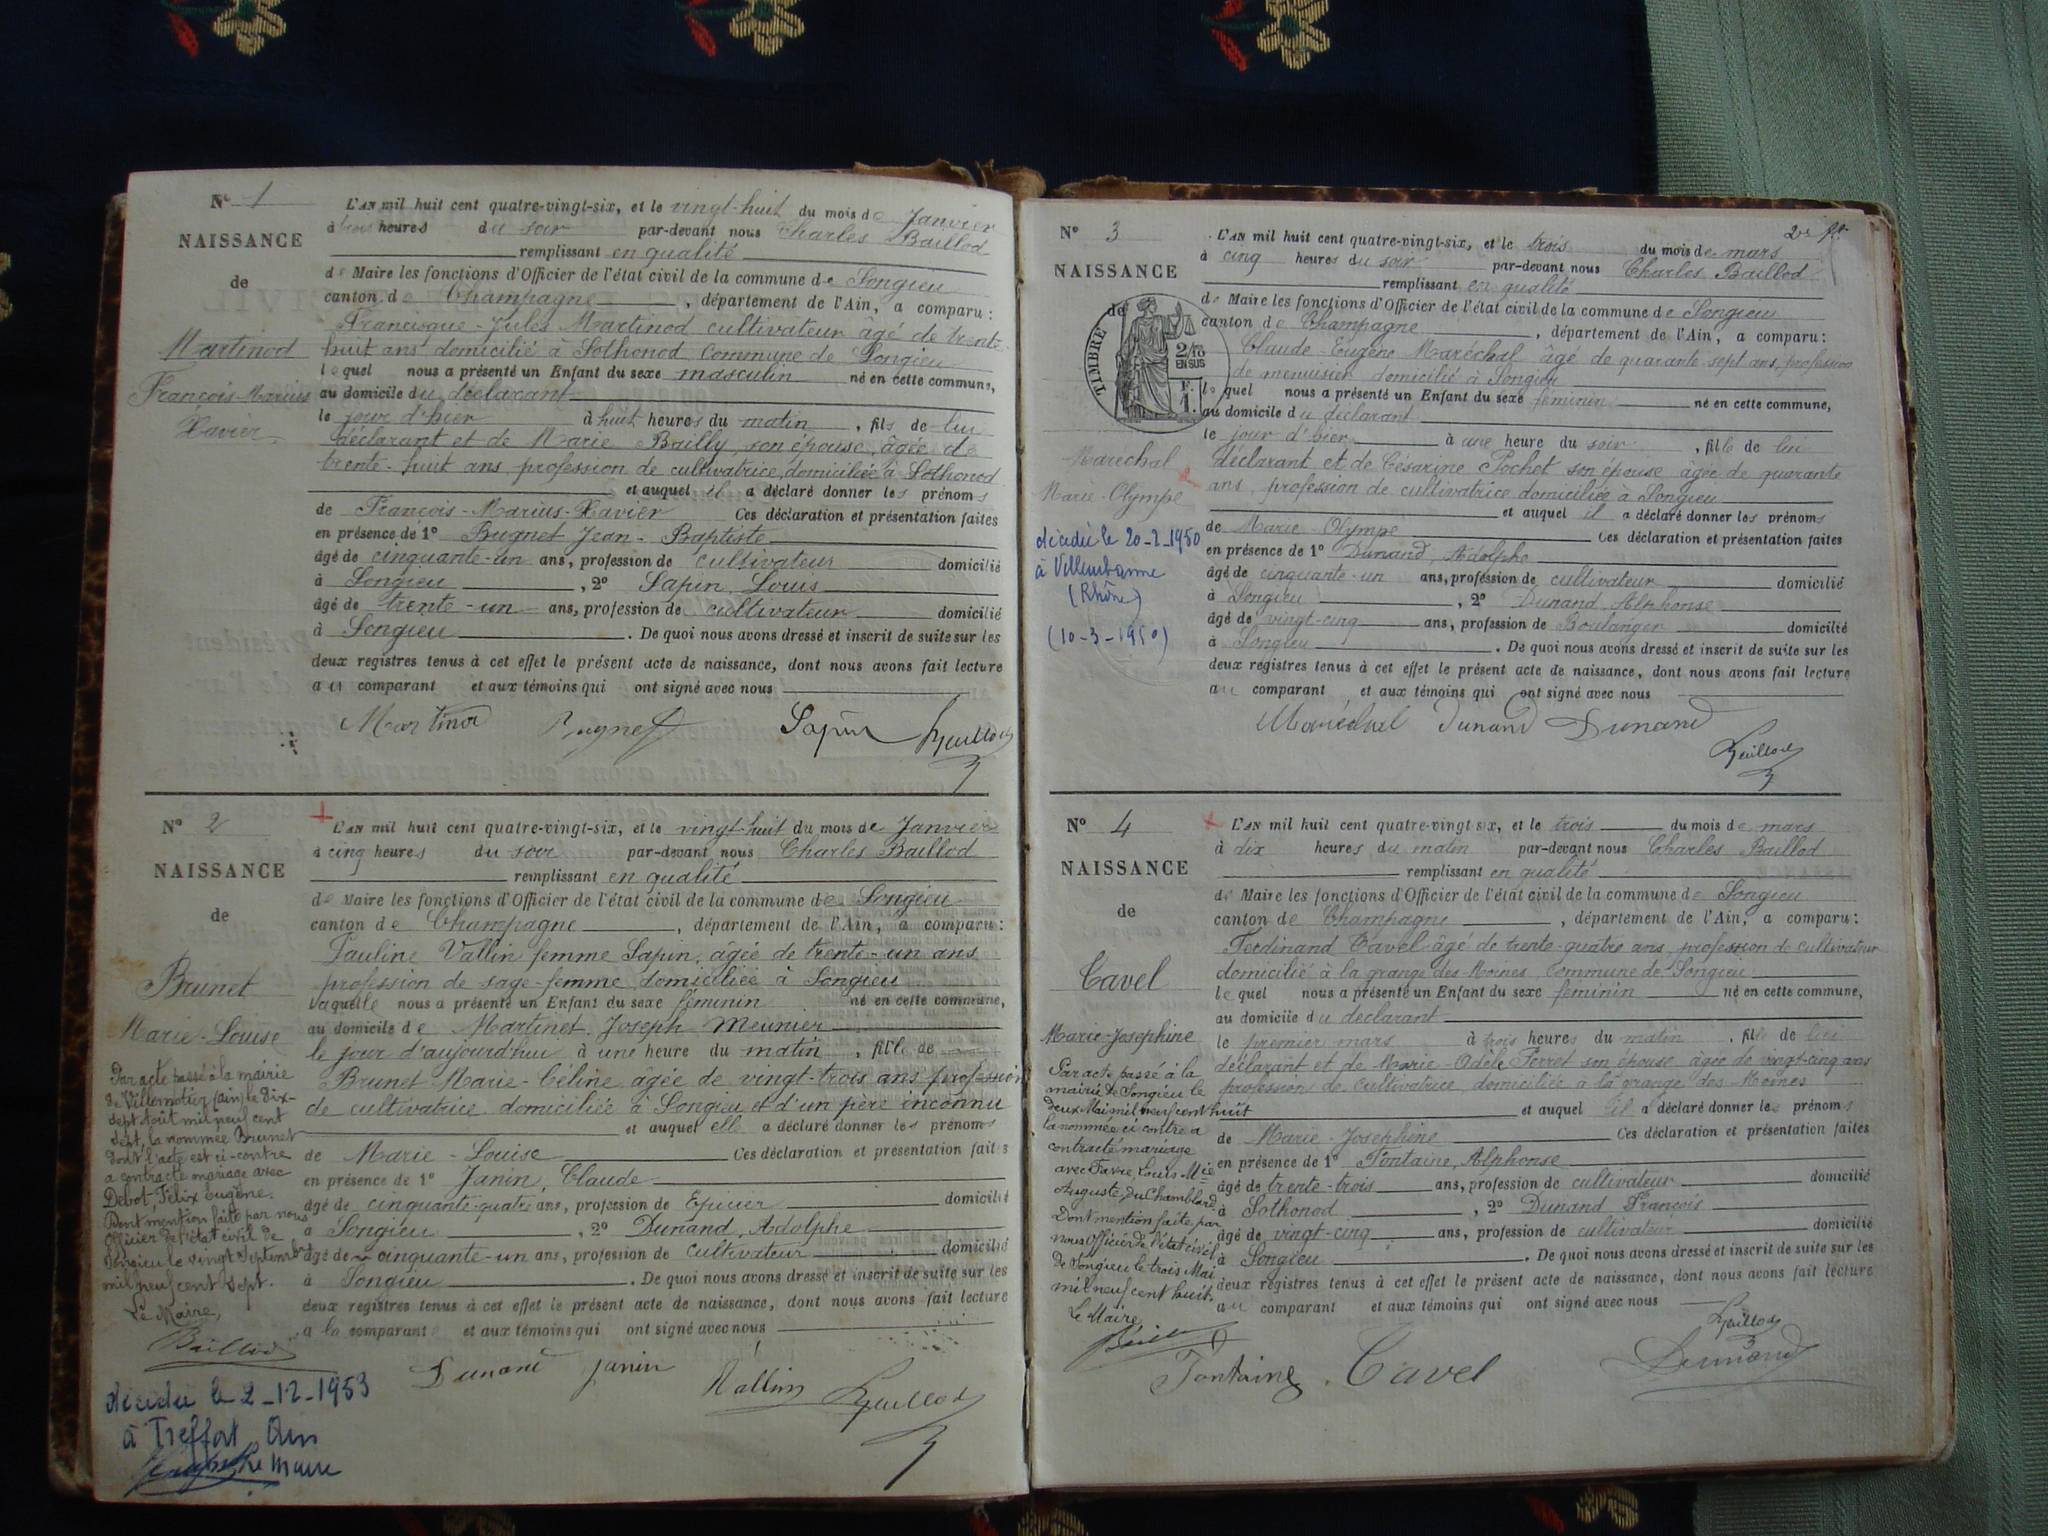 N° 1
NAISSANCE
de
Martinod
François-Marius
Xavier
L'AN mil huit cent quatre-vingt-six, et le vingt-huit du mois de Janvier
à trois heures du soir par-devant nous Charles Baillod
remplissant en qualité
de Maire les fonctions d'Officier de l'état civil de la commune de Songieu
canton de Champagne, département de l'Ain, a comparu :
Francisque-Jules Martinod cultivateur âgé de trente
huit ans domicilié à Sothonod commune de Songieu
lequel nous a présenté un Enfant du sexe masculin né en cette commune,
au domicile du déclarant
le jour d'hier à huit heures du matin, fils de lui
déclarant et de Marie Bailly, son épouse, âgée de
trente-huit ans, profession de cultivatrice, domiciliée à Sothonod
et auquel il a déclaré donner les prénoms
de François-Marius-Xavier Ces déclaration et présentation faites
en présence de 1° Bugnet Jean-Baptiste
âgé de cinquante-un ans, profession de cultivateur domicilié
à Songieu, 2° Sapin Louis
âgé de trente-un ans, profession de cultivateur domicilié
à Songieu. De quoi nous avons dressé et inscrit de suite sur les
deux registres tenus à cet effet le présent acte de naissance, dont nous avons fait lecture
au comparant et aux témoins qui ont signé avec nous
Martinod Bugnet Sapin Baillod
N° 2
NAISSANCE
de
Brunet
Marie-Louise
Par acte passé à la mairie
de Villemotier (Ain) le dix-
sept août mil neuf cent
sept, la nommée Brunet
dont l'acte est ci-contre
a contracté mariage avec
Debot, Félix Eugène.
Dont mention faite par nous
Officier de l'état civil de
Songieu le vingt Septembre
mil neuf cent sept.
Le Maire,
Baillod
décédée le 2-12-1953
à Treffort Ain
Le Maire
L'AN mil huit cent quatre-vingt-six, et le vingt-huit du mois de Janvier
à cinq heures du soir par-devant nous Charles Baillod
remplissant en qualité
de Maire les fonctions d'Officier de l'état civil de la commune de Songieu
canton de Champagne, département de l'Ain, a comparu :
Pauline Vallin femme Sapin, âgée de trente-un ans
profession de sage-femme domiciliée à Songieu
laquelle nous a présenté un Enfant du sexe féminin né en cette commune,
au domicile de Martinet Joseph Meunier
le jour d'aujourd'hui à une heure du matin, fille de
Brunet Marie-Céline âgée de vingt-trois ans profession
de cultivatrice domiciliée à Songieu et d'un père inconnu
et auquel elle a déclaré donner les prénoms
de Marie-Louise Ces déclaration et présentation faites
en présence de 1° Janin, Claude
âgé de cinquante-quatre ans, profession de Epicier domicilié
à Songieu, 2° Dunand, Adolphe
âgé de cinquante-un ans, profession de cultivateur domicilié
à Songieu. De quoi nous avons dressé et inscrit de suite sur les
deux registres tenus à cet effet le présent acte de naissance, dont nous avons fait lecture
a la comparante et aux témoins qui ont signé avec nous
Dunand Janin Vallin Baillod
N° 3
NAISSANCE
de
TIMBRE
2/10
EN SUS
Maréchal
Marie-Olympe
décédée le 20-2-1950
à Villeurbanne
(Rhône)
(10-3-1950)
L'AN mil huit cent quatre-vingt-six, et le trois du mois de mars
à cinq heures du soir par-devant nous Charles Baillod
remplissant en qualité
de Maire les fonctions d'Officier de l'état civil de la commune de Songieu
canton de Champagne, département de l'Ain, a comparu :
Claude-Eugène Maréchal âgé de quarante-sept ans, profession
de menuisier domicilié à Songieu
lequel nous a présenté un Enfant du sexe féminin né en cette commune,
au domicile du déclarant
le jour d'hier à une heure du soir, fille de lui
déclarant et de Césarine Pochet son épouse âgée de quarante
ans, profession de cultivatrice domiciliée à Songieu
et auquel il a déclaré donner les prénoms
de Marie-Olympe Ces déclaration et présentation faites
en présence de 1° Dunand, Adolphe
âgé de cinquante-un ans, profession de cultivateur domicilié
à Songieu, 2° Dunand Alphonse
âgé de vingt-cinq ans, profession de Boulanger domicilié
à Songieu. De quoi nous avons dressé et inscrit de suite sur les
deux registres tenus à cet effet le présent acte de naissance, dont nous avons fait lecture
au comparant et aux témoins qui ont signé avec nous
Maréchal Dunand Dunand
Baillod
N° 4
NAISSANCE
de
Cavel
Marie-Joséphine
Par acte passé à la
mairie de Songieu le
deux Mai mil neuf cent huit
la nommée ci contre a
contracté mariage
avec Favre, Louis Mie
Auguste, du Chamblard
Dont mention faite par
nous Officier de l'état civil
de Songieu le trois Mai
mil neuf cent huit.
Le Maire
L'AN mil huit cent quatre-vingt-six, et le trois du mois de mars
à dix heures du matin par-devant nous Charles Baillod
remplissant en qualité
de Maire les fonctions d'Officier de l'état civil de la commune de Songieu
canton de Champagne, département de l'Ain, a comparu :
Ferdinand Cavel âgé de trente-quatre ans, profession de cultivateur
domicilié à la grange des Moines, commune de Songieu
lequel nous a présenté un Enfant du sexe féminin né en cette commune,
au domicile du déclarant
le premier mars à trois heures du matin, fille de lui
déclarant et de Marie-Odèle Perret son épouse âgée de vingt-cinq ans
profession de cultivatrice domiciliée à la grange des Moines
et auquel il a déclaré donner les prénoms
de Marie-Joséphine Ces déclaration et présentation faites
en présence de 1° Fontaine, Alphonse
âgé de trente-trois ans, profession de cultivateur domicilié
à Sothonod, 2° Dunand François
âgé de vingt-cinq ans, profession de cultivateur domicilié
à Songieu. De quoi nous avons dressé et inscrit de suite sur les
deux registres tenus à cet effet le présent acte de naissance, dont nous avons fait lecture
au comparant et aux témoins qui ont signé avec nous
Baillod
Fontaine Cavel Dunand